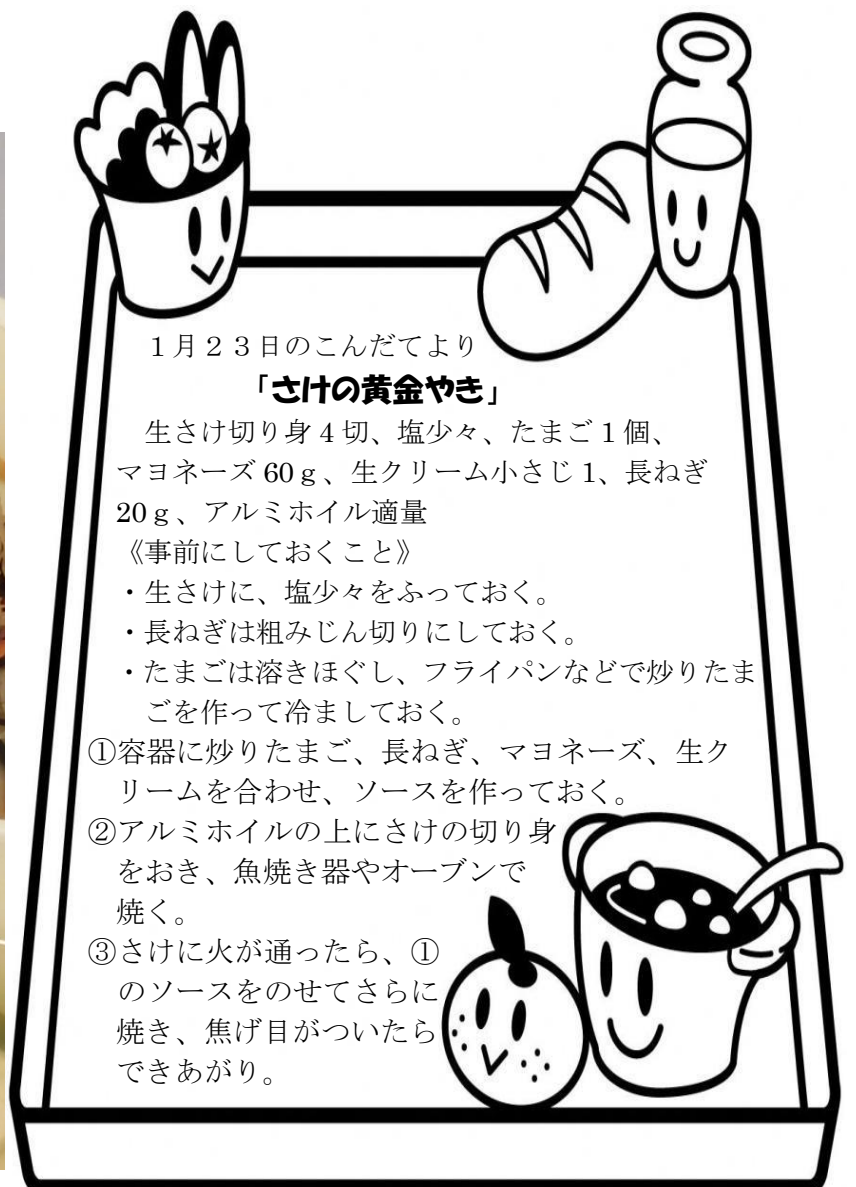 1月23日のこんだてより
「さけの黄金やき」
生さけ切り身4切、塩少々、たまご1個、
マヨネーズ60g、生クリーム小さじ1、長ねぎ
20g、アルミホイル適量
《事前にしておくこと》
・生さけに、塩少々をふっておく。
・長ねぎは粗みじん切りにしておく。
・たまごは溶きほぐし、フライパンなどで炒りたま
ごを作って冷ましておく。
①容器に炒りたまご、長ねぎ、マヨネーズ、生ク
リームを合わせ、ソースを作っておく。
②アルミホイルの上にさけの切り身
をおき、魚焼き器やオーブンで
焼く。
③さけに火が通ったら、①
のソースをのせてさらに
焼き、焦げ目がついたら
できあがり。